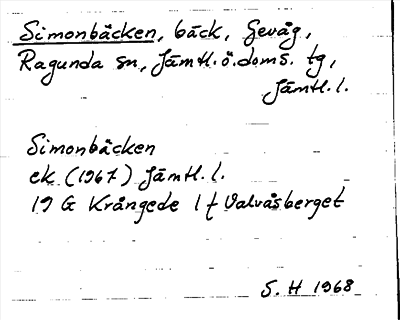 Simonbäcken, bäck, Gevåg,
Ragunda sn, Jämtl. ö. doms. tg,
Jämtl. l.
Simonbäcken
ek (1967) Jämtl. l.
19 G Krångede 1 f Valvåsberget
S. H 1968